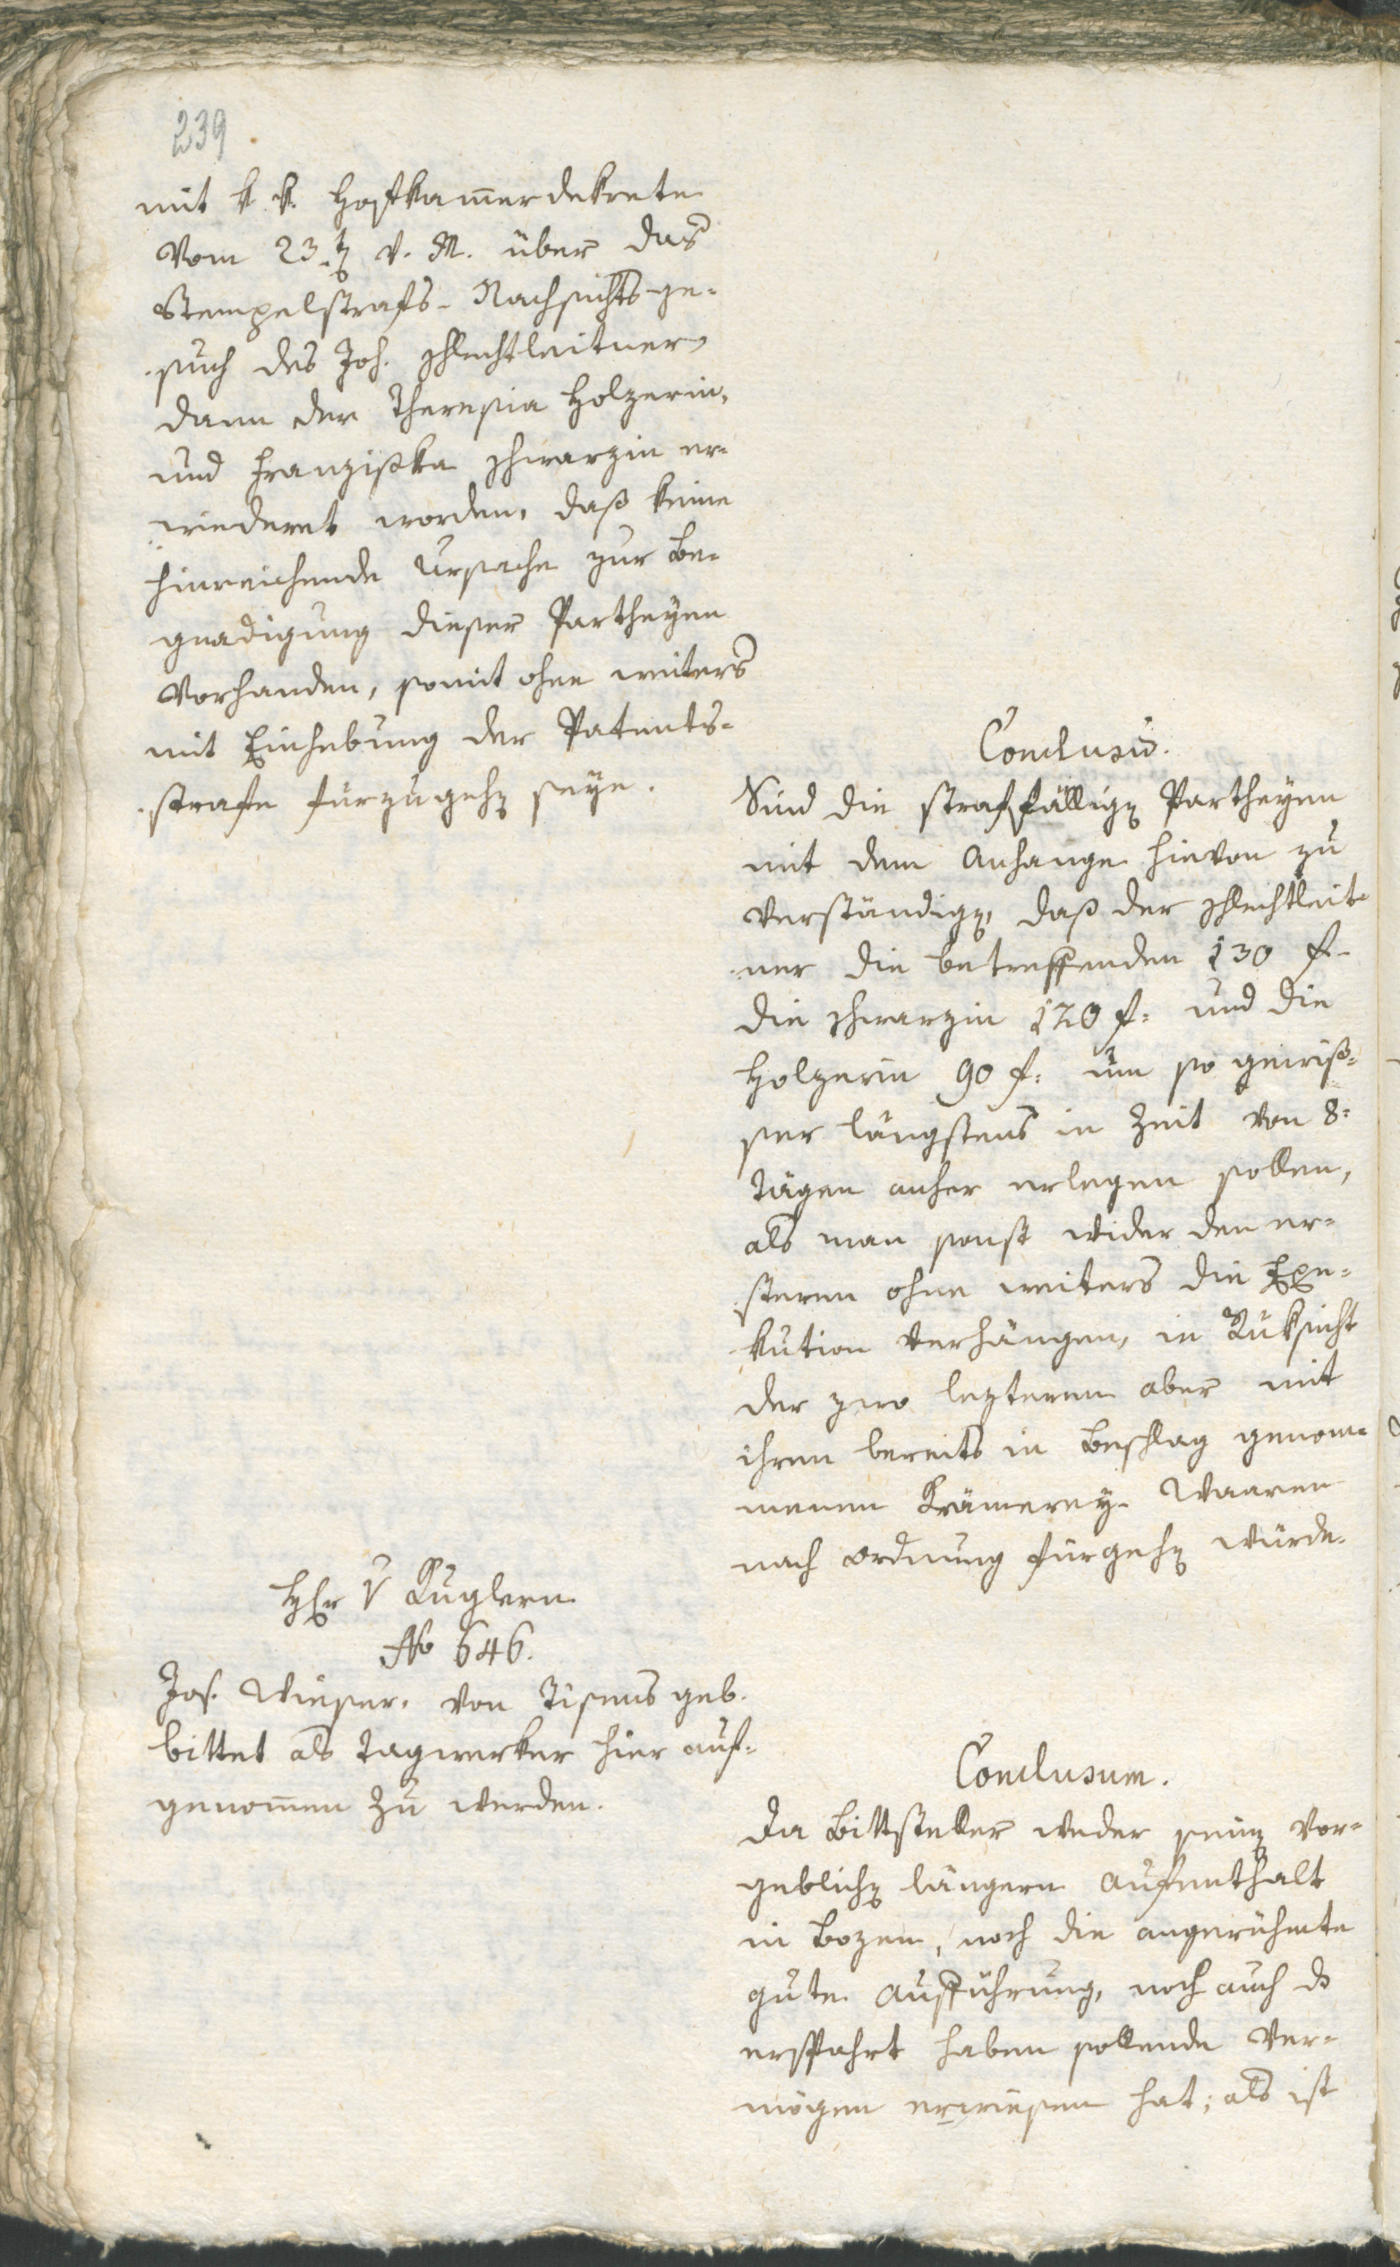 239
mit k. k. Hofkam̄erdekrete
vom 23t v. M. über das
Stempelstrafs-Nachsichts-ge-
such des Joh. Schlechtleitner,
dann der Theresia Holzerin,
und Franziska Schwarzin er-
wiederet worden, daß keine
hinreichende Ursache zur Be-
gnadigung dieser Partheyen
vorhanden, somit ohne weiters
mit Einhebung der Patents-
strafe fürzugehen seye.
Conclusū.
Sind die straffälligen Partheyen
mit dem Anhange hievon zu
verständigen, daß der Schlechtleit-
ner die betreffenden 130 f-
die Schwarzin 120 f: und die
Holzerin 90 f: um so gewiß-
ser längstens in Zeit von 8:
Tägen anher erlegen sollen,
als man sonst wider den er-
steren ohne weiters die Exe-
kution verhängen, in Rüksicht
der zwo lezteren aber mit
ihren bereits in Beschlag genom-
menen Krämerey-Waaren
nach Ordnung fürgehen würde.
H. v Kuglern
No 646.
Jos. Wieser, von Tisens geb.
bittet als Tagwerker hier auf-
genom̄en zu werden.
Conclusum.
Da Bittsteller weder seinen vor-
geblichen längern Aufenthalt
in Bozen, noch die angerühmte
gute Aufführung, noch auch ds
erspahrt haben sollende Ver-
mögen erwiesen hat; als ist